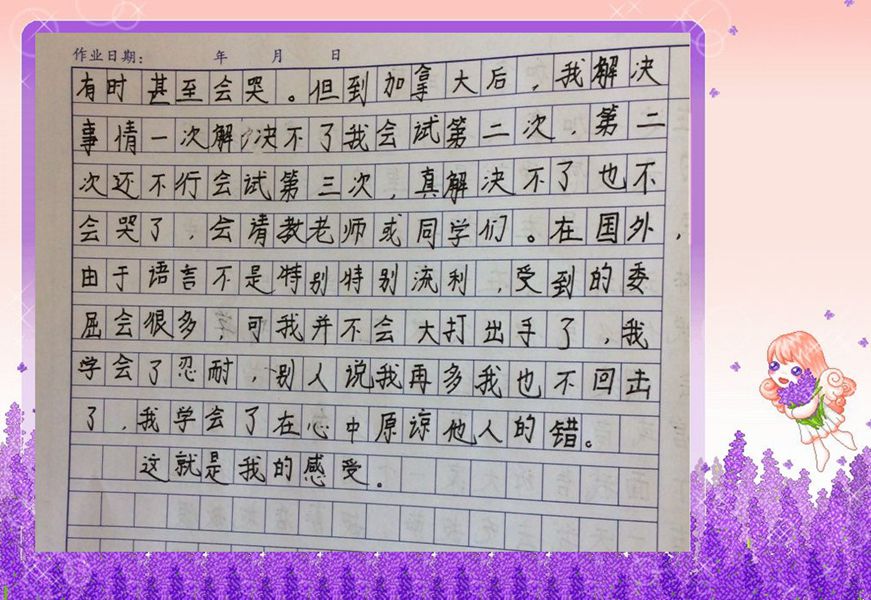 作业日期： 年 月 日
有时甚至会哭。但到加拿大后，我解决
事情一次解决不了我会试第二次，第二
次还不行会试第三次，真解决不了也不
会哭了，会请教老师或同学们。在国外，
由于语言不是特别特别流利，受到的委
屈会很多，可我并不会大打出手了，我
学会了忍耐，别人说我再多我也不回击
了，我学会了在心中原谅他人的错。
这就是我的感受。